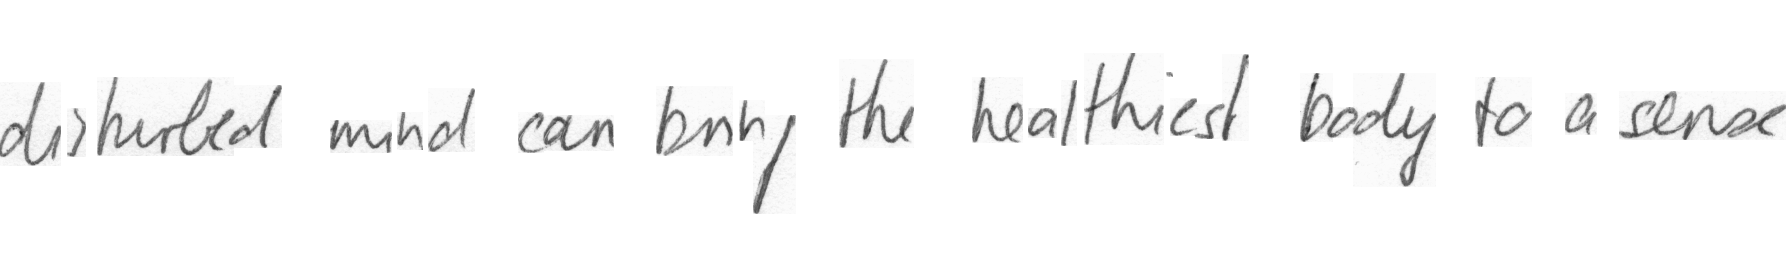 disturbed mind can bring the healthiest body to a sense